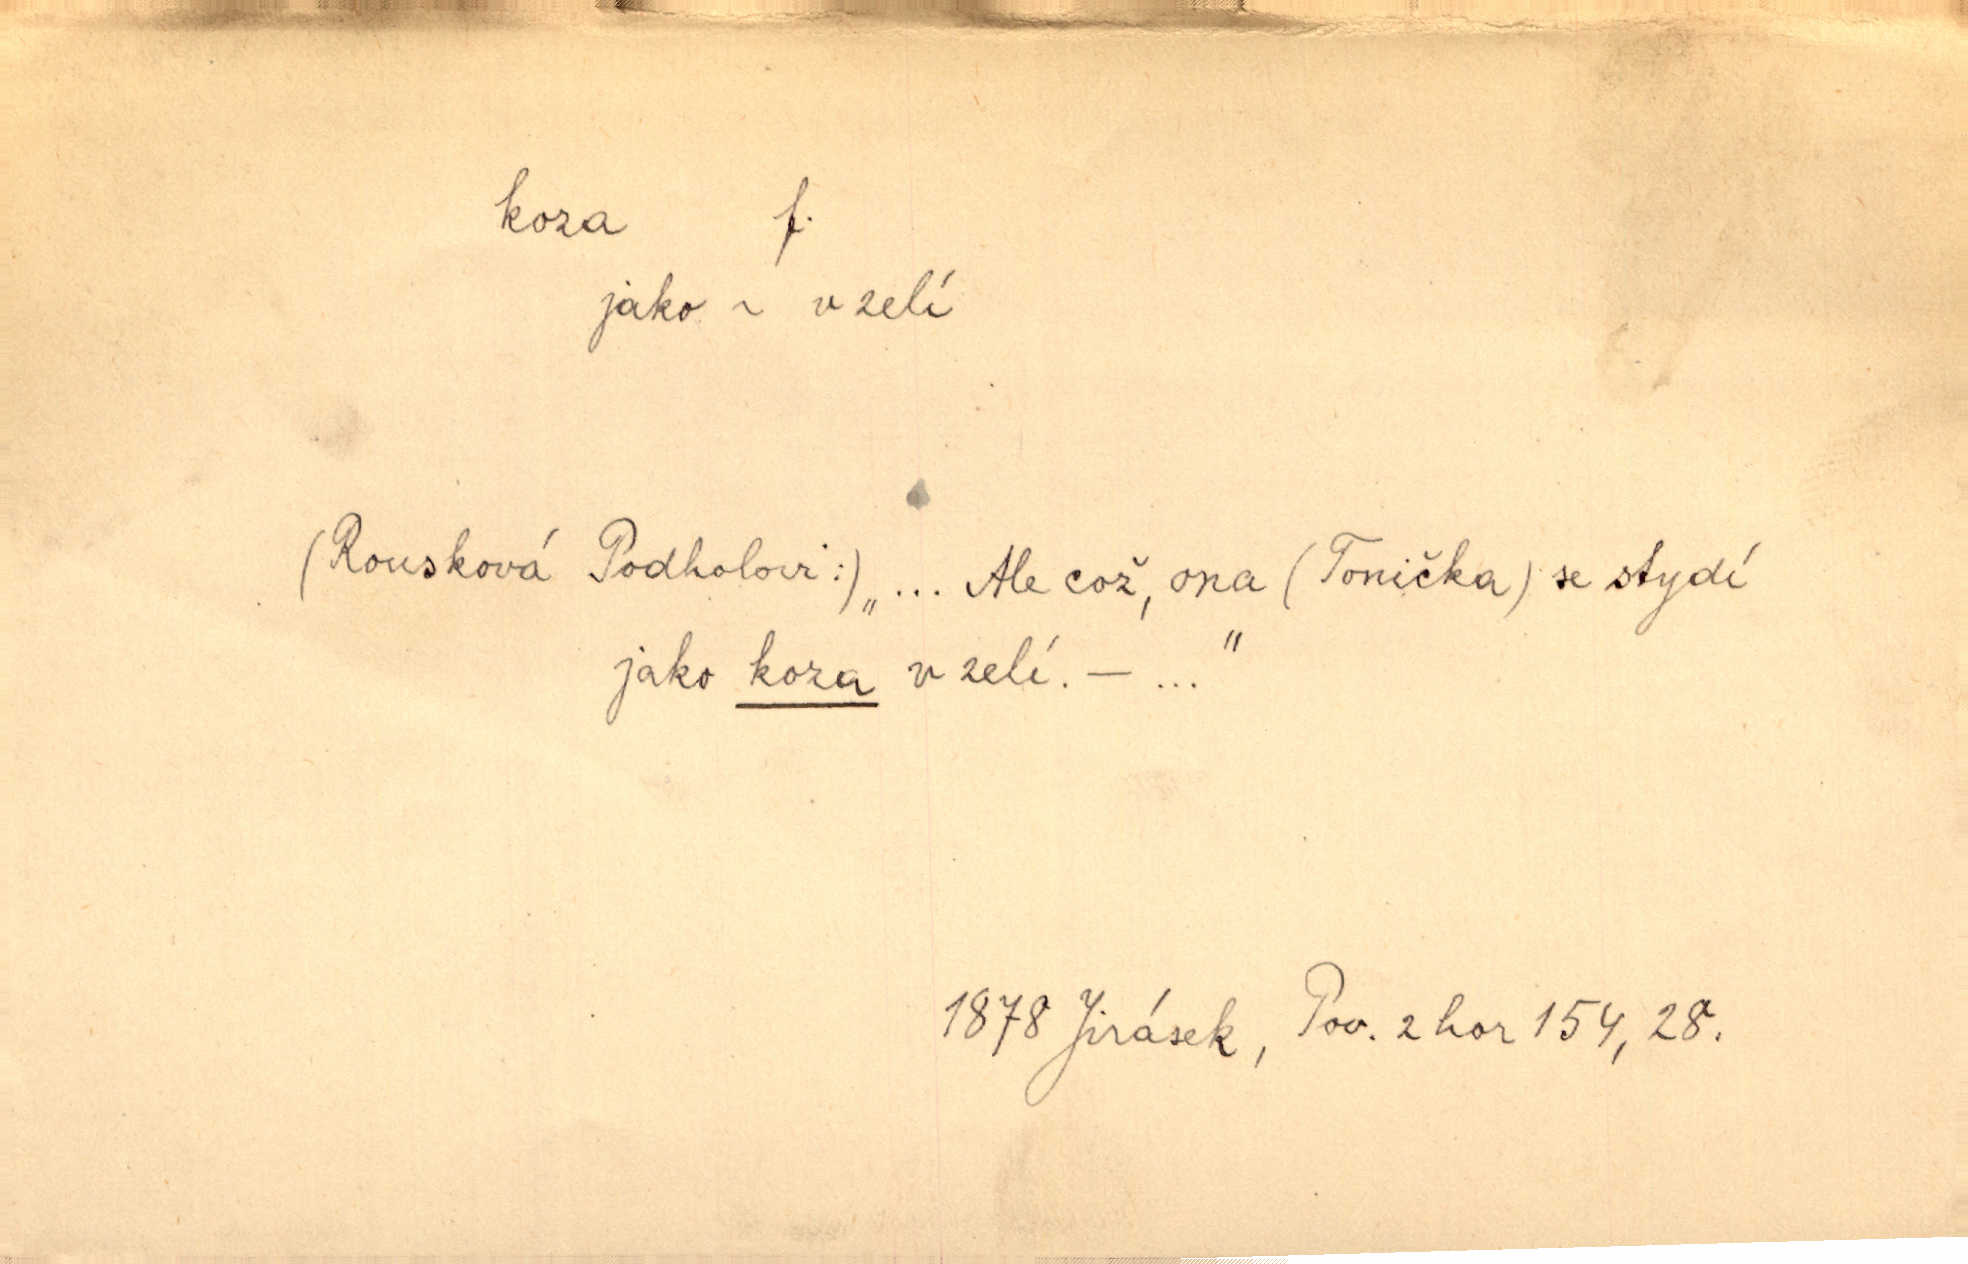 koza f.
jako ~ v zelí
(Rousková Podholovi:) „... Ale což, ona (Tonička) se stydí
jako koza v zelí. — ..."
1878 Jirásek, Pov. z hor 154, 28.